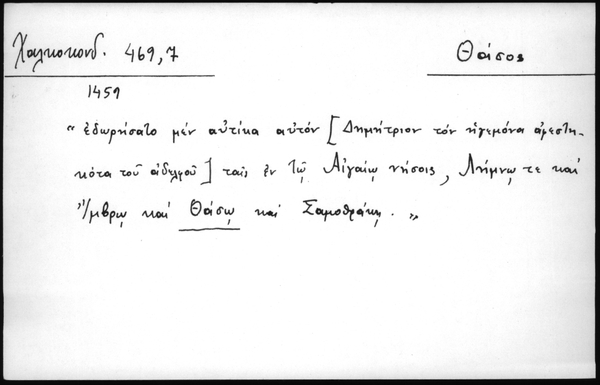 Χαλκοκονδ. 469,7
Θάσος
1459
"ἐδωρήσατο μέν αὐτίκα αὐτόν [Δημήτριον τόν ἡγεμόνα ἀφεστη-
κότα τοῦ ἀδελφοῦ] ταῖς ἐν τῷ Αἰγαίῳ νήσοις, Λήμνῳ τε καί
Ἴμβρῳ καί Θάσῳ καί Σαμοθράκῃ. "